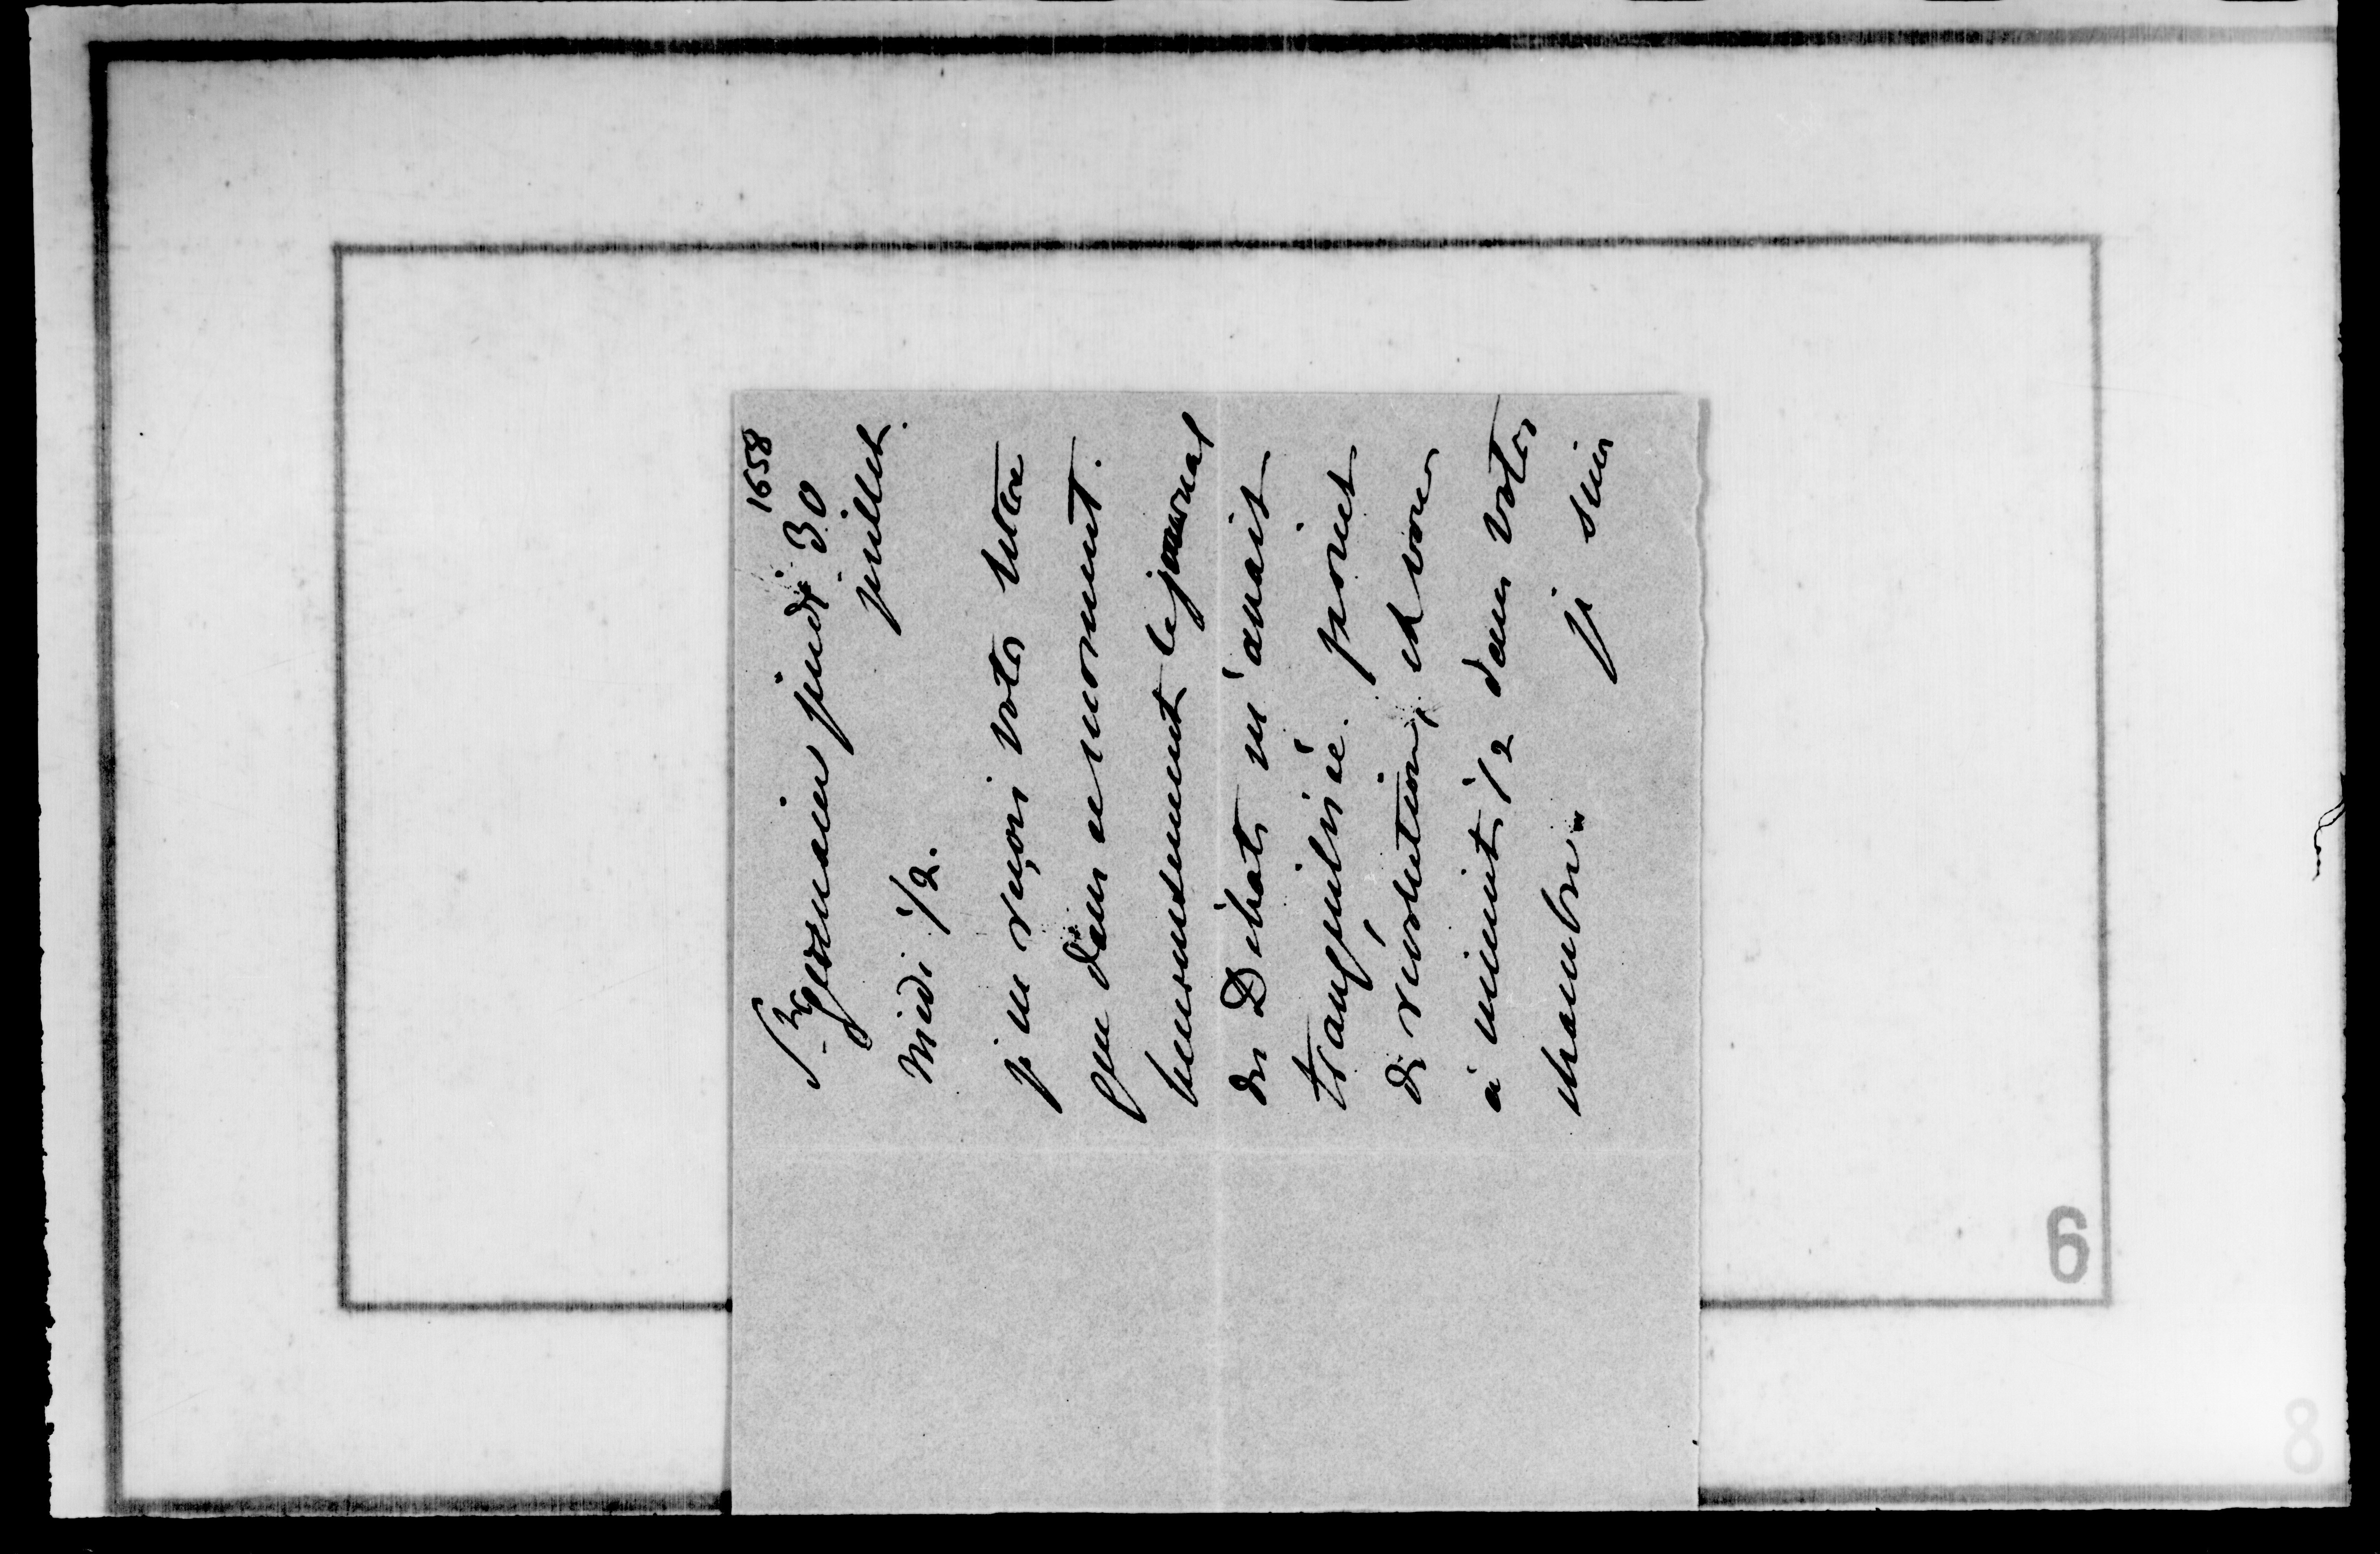 1658
St Germain jeudi 30
juillet.
Midi 1/2.
je ne reçois votre lettre
que dans ce moment.
heureusement le journal
des Débats m'avait
tranquilisée. point
de révolution, et vous
à minuit 1/2 dans votre
chambre. je suis
6
8